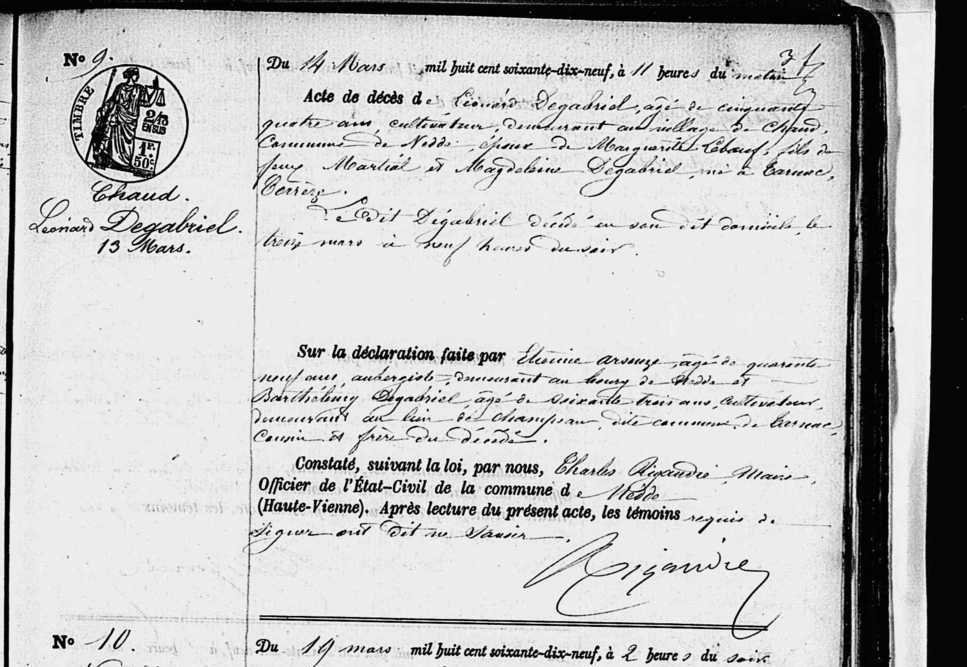 N° 9.
TIMBRE
2/10
EN SUS
1F.
50c.
Chaud.
Léonard Degabriel.
13 Mars.
Du 14 Mars mil huit cent soixante-dix-neuf, à 11 heures du matin
Acte de décès de Léonard Degabriel, âgé de cinquante
quatre ans, cultivateur, demeurant au village de Chaud,
Commune de Nedde, époux de Marguerite Lebœuf, fils de
feux Martial et Magdeleine Degabriel, né à Tarnac,
Corrèze.
Le dit Degabriel décédé en son dit domicile le
treize mars à neuf heures du soir.
Sur la déclaration faite par Etienne arsouze, âgé de quarante
neuf ans, aubergiste, demeurant au bourg de Nedde et
Barthélemy Degabriel, âgé de soixante trois ans, cultivateur,
demeurant au lieu de Champseau, dite commune de Tarnac,
Cousin et frère du décédé.
Constaté, suivant la loi, par nous, Charles Rigaudie, Maire,
Officier de l'État-Civil de la commune de Nedde
(Haute-Vienne). Après lecture du présent acte, les témoins requis de
signer ont dit ne savoir.
Rigaudie
N° 10.
Du 19 mars mil huit cent soixante-dix-neuf, à 2 heures du soir